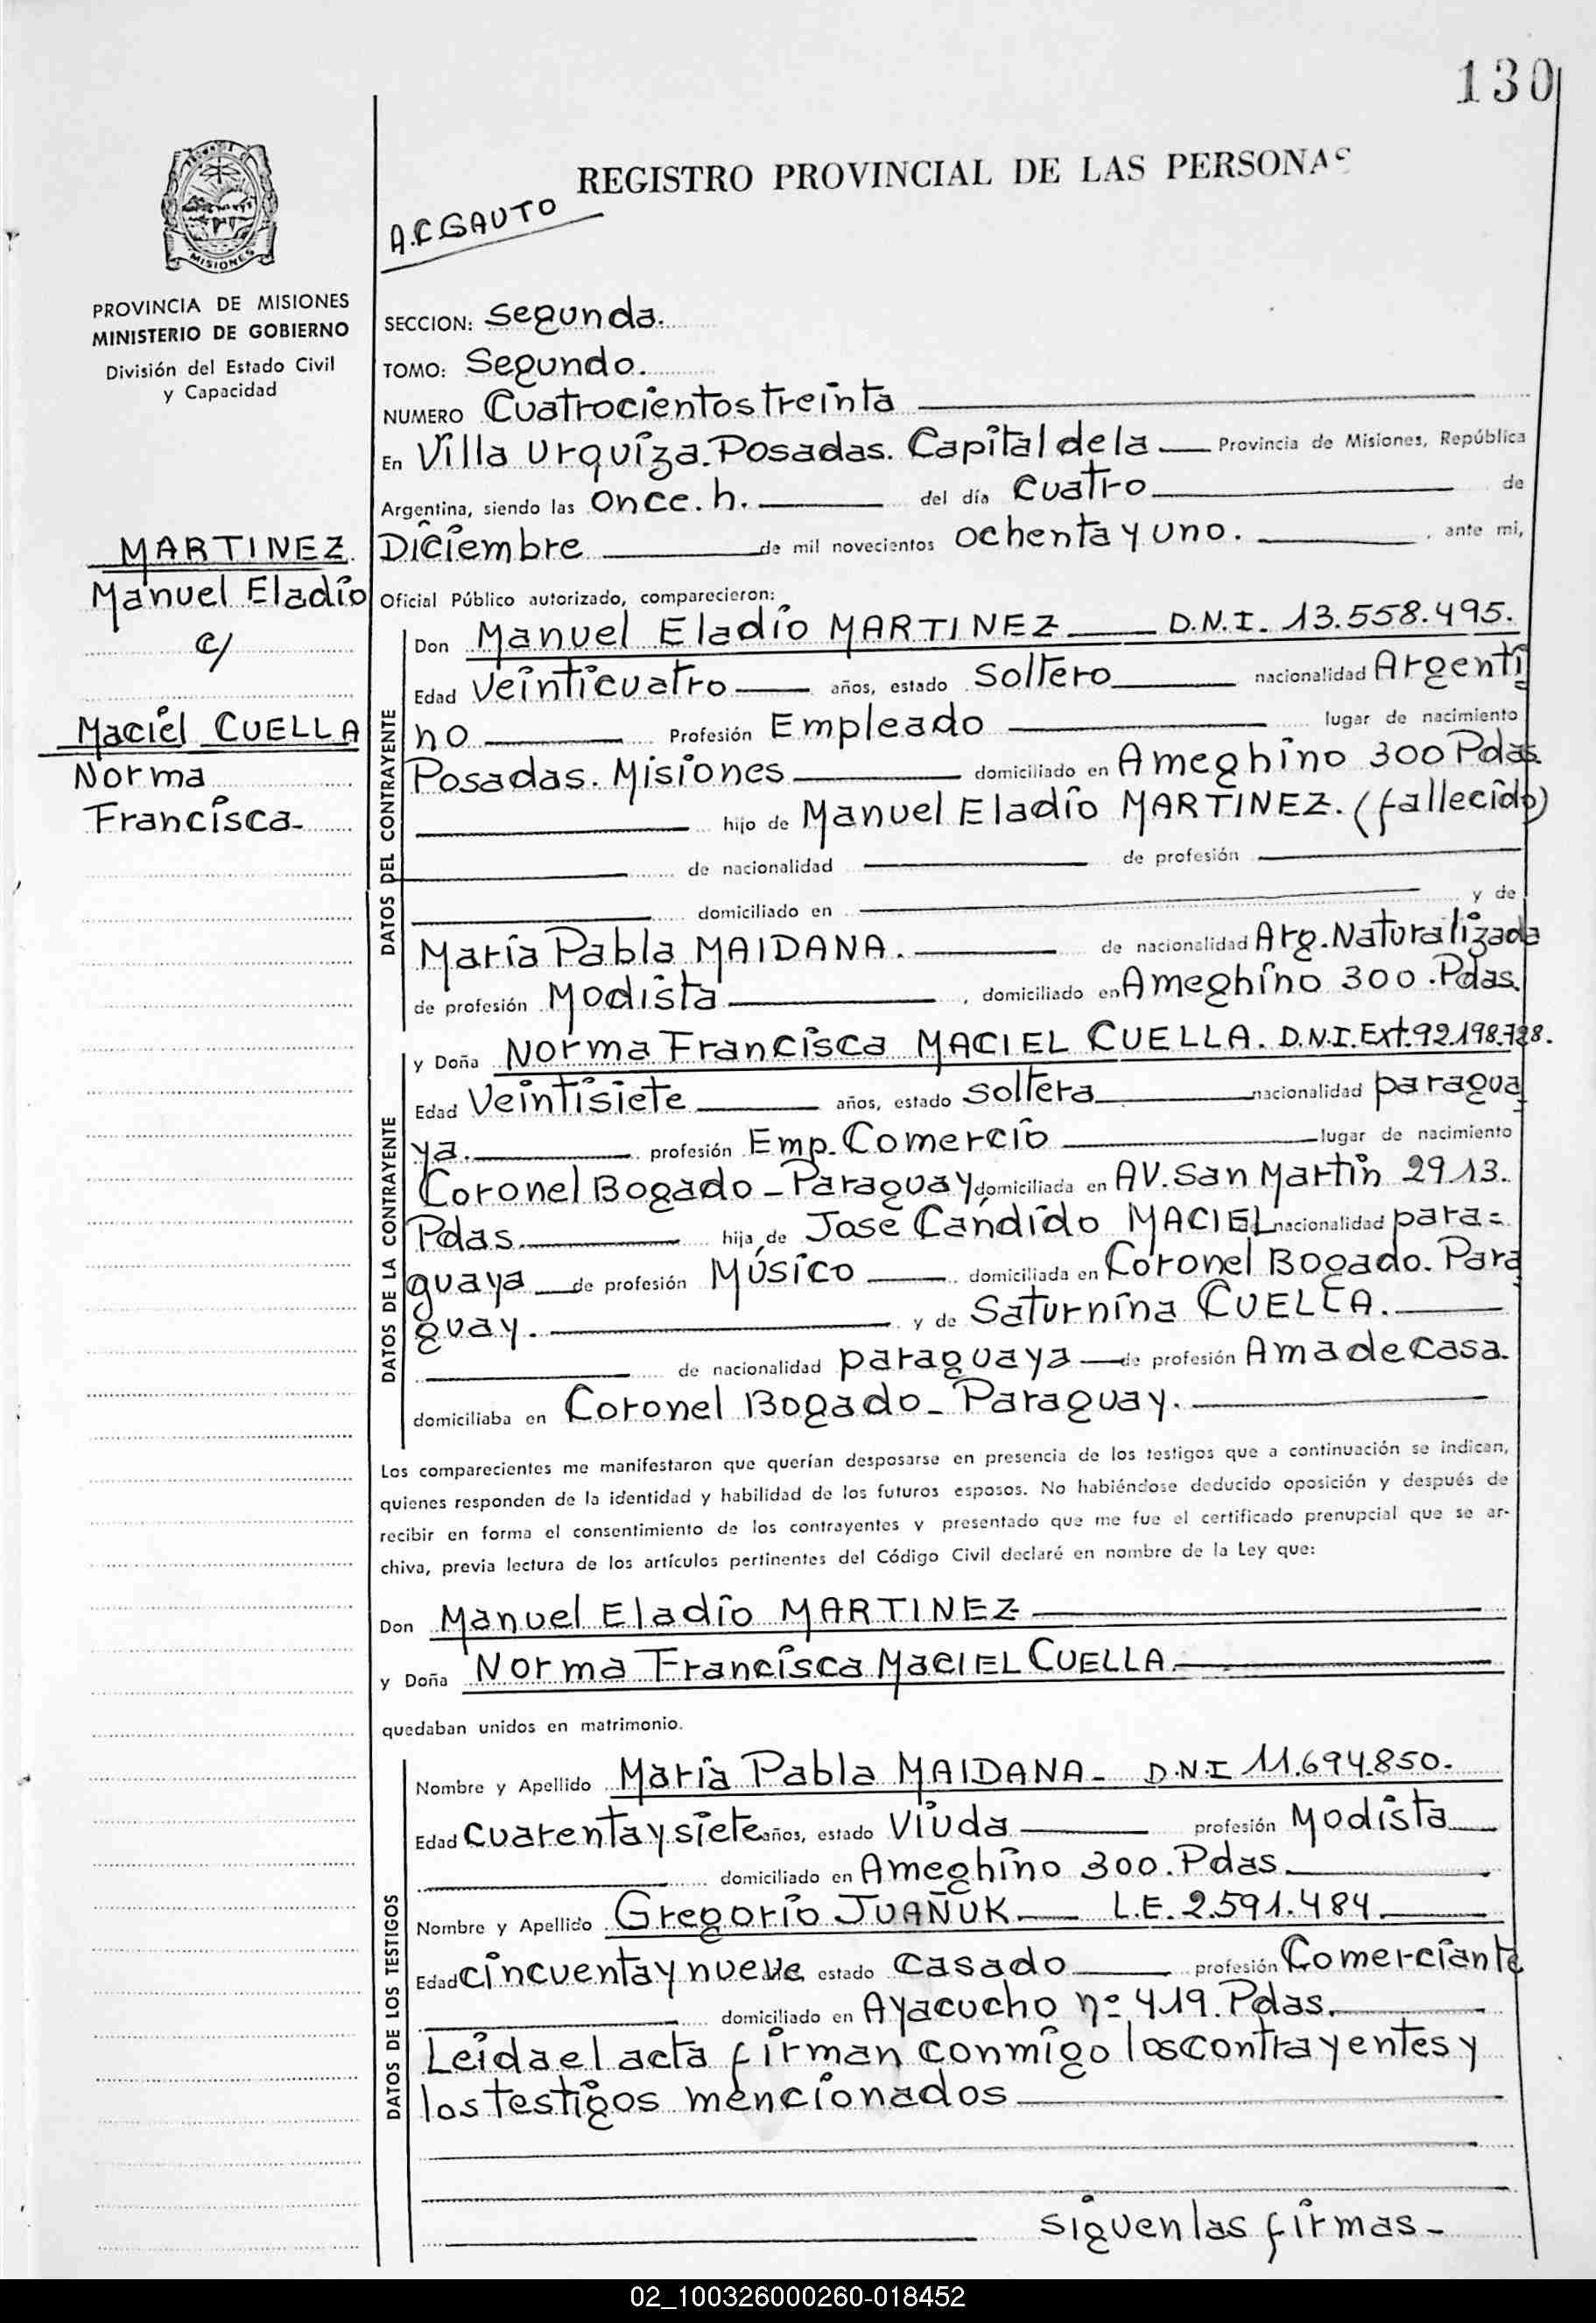 130
REGISTRO PROVINCIAL DE LAS PERSONAS
A.C.GAUTO
MISIONES
PROVINCIA DE MISIONES
MINISTERIO DE GOBIERNO
División del Estado Civil
y Capacidad
SECCION: Segunda.
TOMO: Segundo.
NUMERO Cuatrocientos treinta
En Villa Urquiza. Posadas. Capital de la Provincia de Misiones, República
Argentina, siendo las Once. h. del día Cuatro de
Diciembre de mil novecientos ochenta y uno. , ante mi,
MARTINEZ
Manuel Eladio
c/
Maciel CUELLA
Norma
Francisca-
Oficial Público autorizado, comparecieron:
DATOS DEL CONTRAYENTE
Don Manuel Eladio MARTINEZ D.N.I. 13.558.495.
Edad Veinticuatro años, estado Soltero nacionalidad Argenti
no Profesión Empleado lugar de nacimiento
Posadas. Misiones domiciliado en Ameghino 300 Pdas.
hijo de Manuel Eladio MARTINEZ. (fallecido)
de nacionalidad de profesión
domiciliado en y de
María Pabla MAIDANA. de nacionalidad Arg. Naturalizada
de profesión Modista , domiciliado en Ameghino 300. Pdas.
DATOS DE LA CONTRAYENTE
y Doña Norma Francisca MACIEL CUELLA. D.N.I. Ext. 92.198.728.
Edad Veintisiete años, estado Soltera nacionalidad paragua
ya. profesión Emp. Comercio lugar de nacimiento
Coronel Bogado - Paraguay domiciliada en AV. San Martín 2913.
Pdas. hija de Jose Cándido MACIEL nacionalidad para=
guaya de profesión Músico domiciliada en Coronel Bogado. Para
guay. y de Saturnina CUELLA.
de nacionalidad paraguaya de profesión Ama de Casa.
domiciliaba en Coronel Bogado - Paraguay.
Los comparecientes me manifestaron que querían desposarse en presencia de los testigos que a continuación se indican,
quienes responden de la identidad y habilidad de los futuros esposos. No habiéndose deducido oposición y después de
recibir en forma el consentimiento de los contrayentes y presentado que me fue el certificado prenupcial que se ar-
chiva, previa lectura de los artículos pertinentes del Código Civil declaré en nombre de la Ley que:
Don Manuel Eladio MARTINEZ
y Doña Norma Francisca MACIEL CUELLA
quedaban unidos en matrimonio.
DATOS DE LOS TESTIGOS
Nombre y Apellido María Pabla MAIDANA- D.N.I 11.694.850.
Edad Cuarenta y siete años, estado Viuda profesión Modista
domiciliado en Ameghino 300. Pdas.
Nombre y Apellido Gregorio JUAÑUK L.E. 2.591.484.
Edad cincuenta y nueve estado Casado profesión Comerciante
domiciliado en Ayacucho nº 419. Pdas.
Leida el acta firman conmigo los contrayentes y
los testigos mencionados
siguen las firmas-
02_100326000260-018452